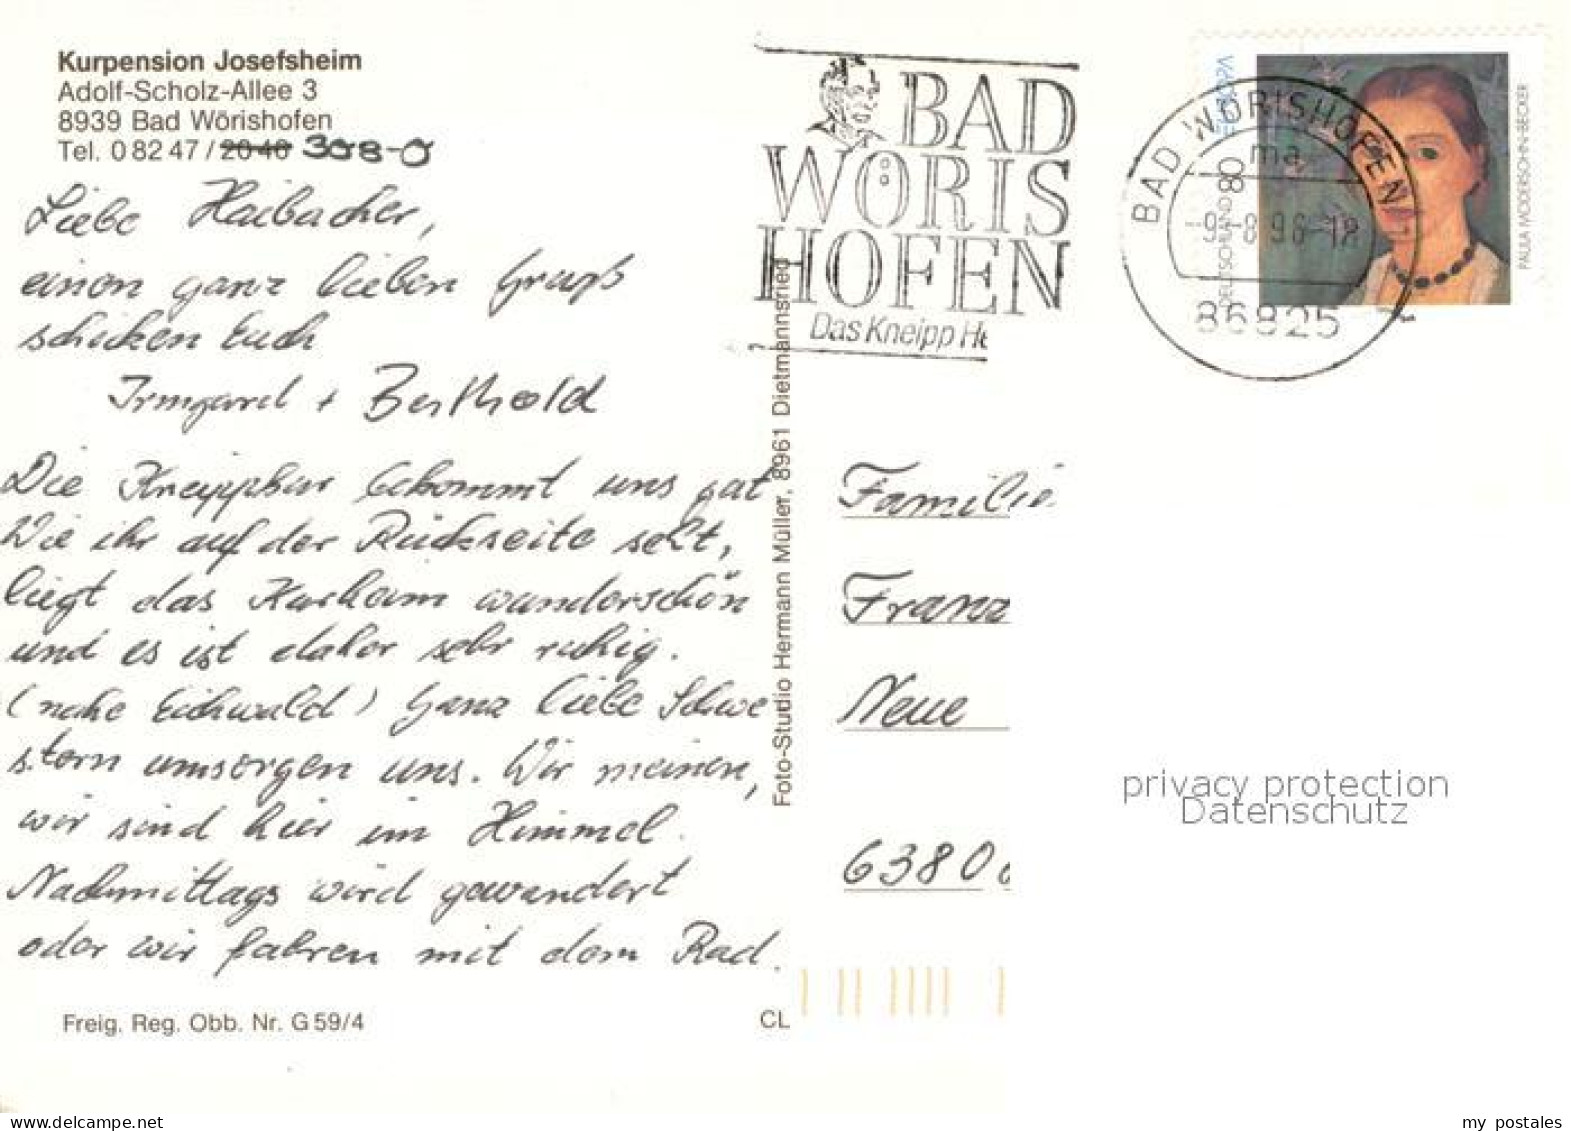 Kurpension Josefsheim
Adolf-Scholz-Allee 3
8939 Bad Wörishofen
Tel. 0 82 47 / 20 40 308-0
Liebe Haibacher,
einen ganz lieben Gruß
schicken Euch
Irmgard + Berthold
Die Kneippkur bekommt uns gut
Wie ihr auf der Rückseite seht,
liegt das Kurheim wunderschön
und es ist daher sehr ruhig.
(nahe Eichwald) Ganz liebe Schwe
stern umsorgen uns. Wir meinen,
wir sind hier im Himmel.
Nachmittags wird gewandert
oder wir fahren mit dem Rad.
Freig. Reg. Obb. Nr. G 59/4
CL
Foto-Studio Hermann Müller, 8961 Dietmannsried
BAD
WÖRIS
HOFEN
Das Kneipp He
BAD WÖRISHOFEN 1
ma
-9.-8.96-18
86825
EUROPA
DEUTSCHLAND 80
PAULA MODERSOHN-BECKER
Familie
Franz
Neue
6380
privacy protection
Datenschutz
www.delcampe.net
my_postales